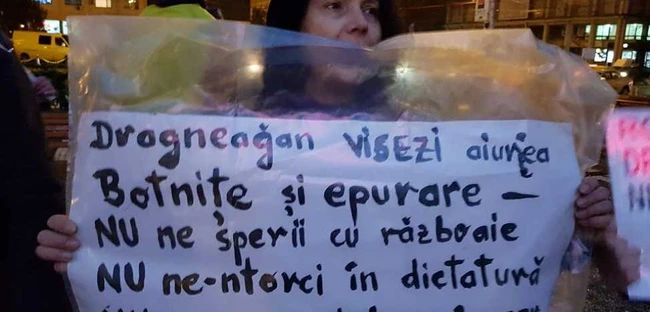 Dragneağan VISEZI aiurea
Botnițe și epurare –
NU ne sperii cu războaie
NU ne-ntorci în dictatură